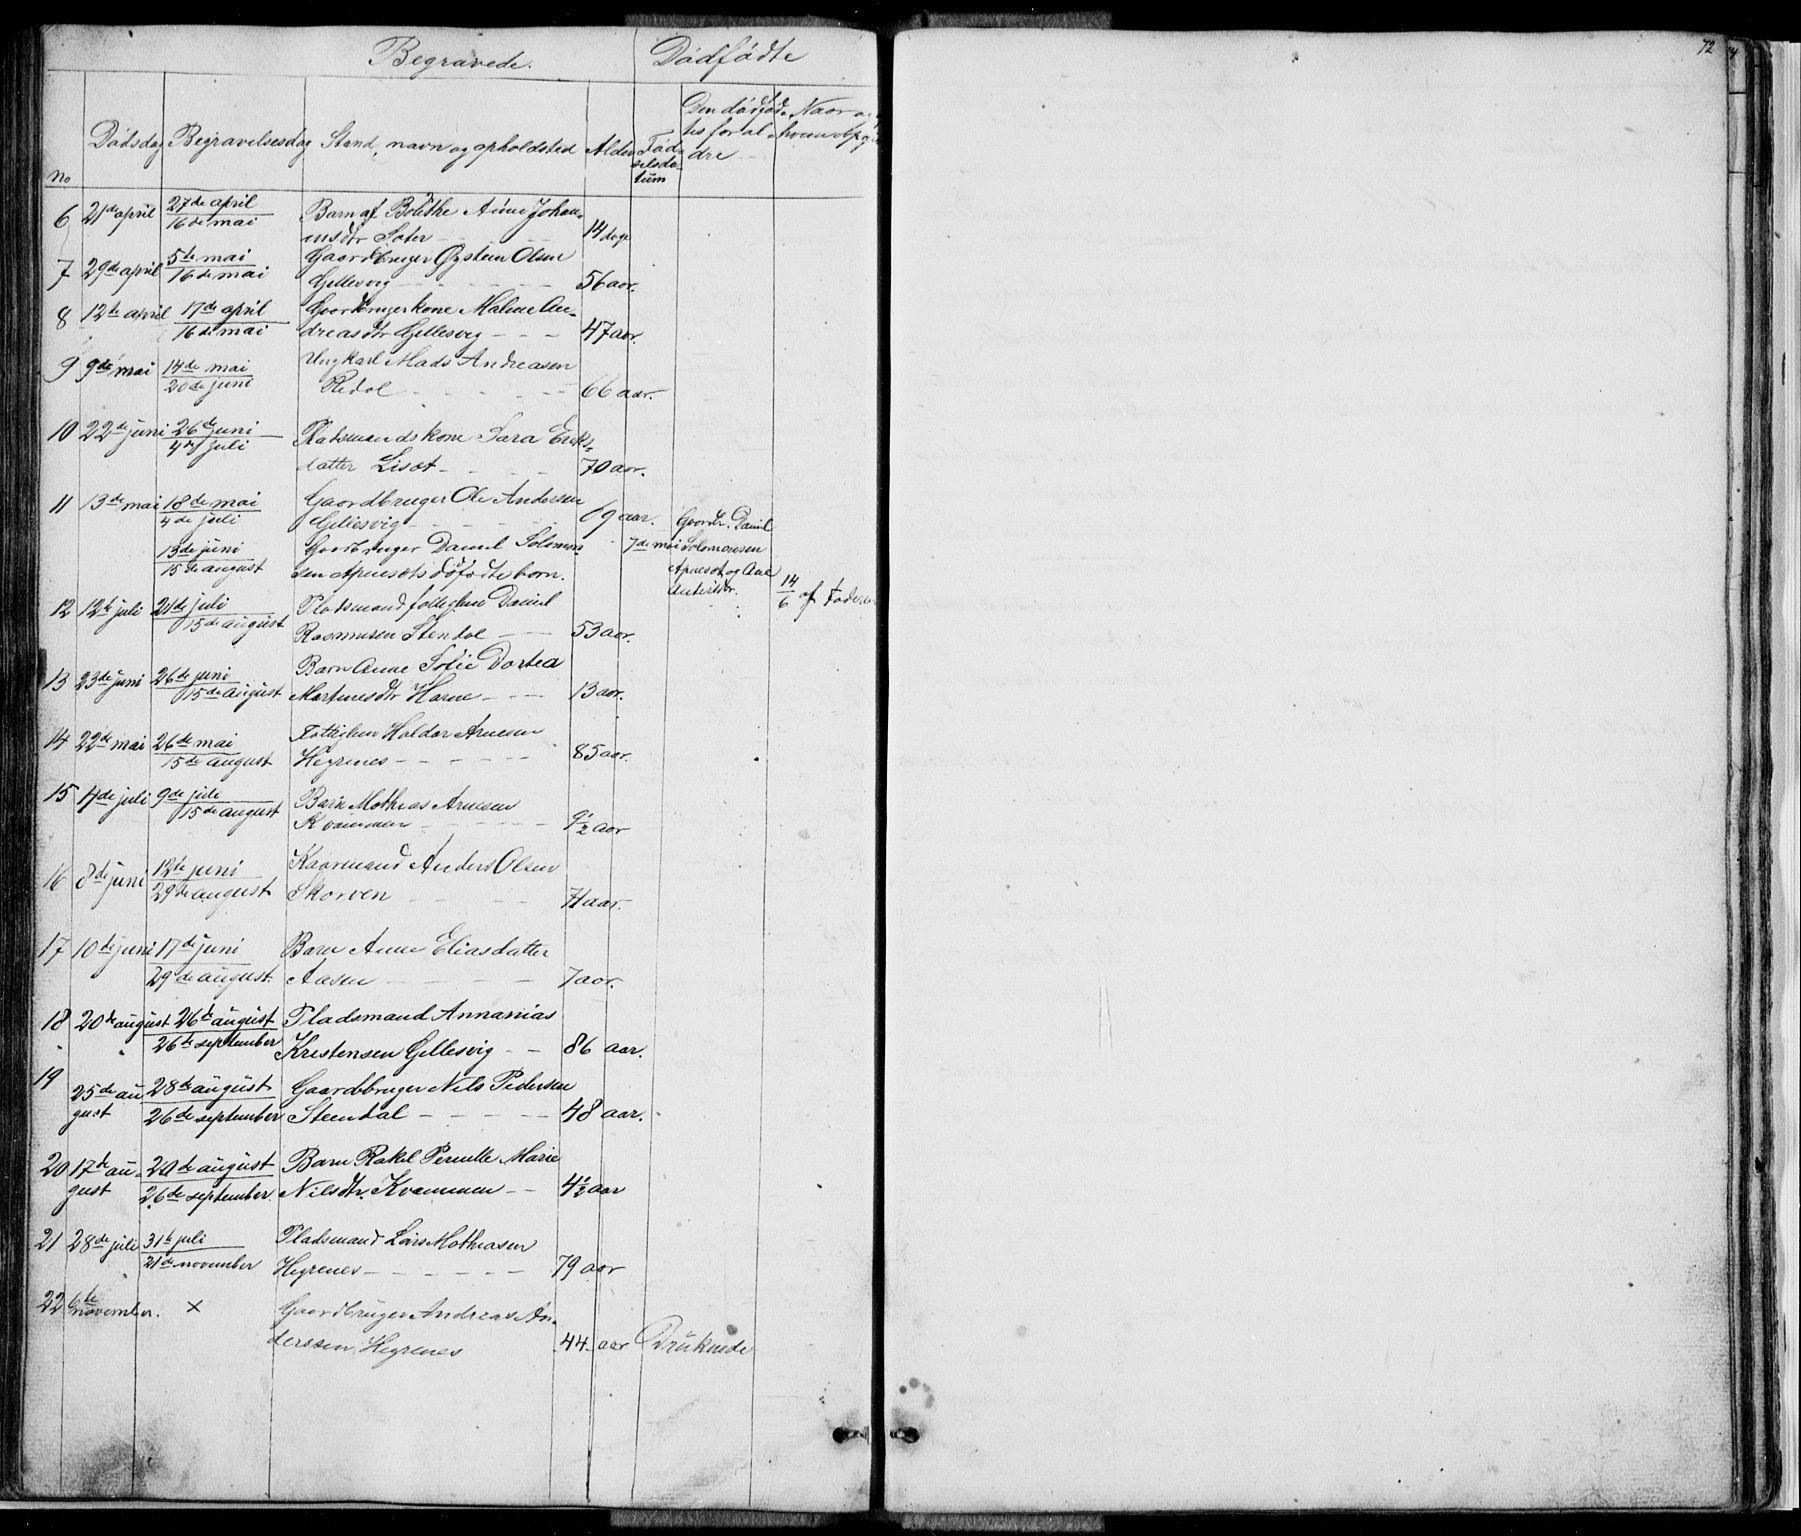 Begravede. Dödfödte
72
No Dödsdag Begravelsesdag Stand, navn og opholdsted Alder Födselsdatum Den dödfödtes foraldre Naar og hvem
6 21de april 27de april Barn af Bolithe Anne Johan-
16de mai nsdtr Sater 14 dage
7 29de april 5te mai Gaardbruger Öystein Olsen
16de mai Gillesvig 56 aar.
8 12te april 17de april Gaardbrugerkone Malene An-
16de mai dreasdtr Gillesvig 47 aar.
9 9de mai 14de mai Ungkarl Mads Andreasen
20de juni Redal 66 aar.
10 22de juni 26de juni Pladsmandskone Sara Eriks-
4de juli datter Lisæt 70 aar.
11 13de mai 18de mai Gaardbruger Ole Andersen
4de juli Gillesvig 69 aar.
13de juni Gaardbruger Daniel Solomon- 7de mai Gaardbr. Daniel
15de august sen Apnesæts döfödte barn. Solomonsen
Apnesæt og Ane
14/6 af Faderen
12 12te juli 21de juli Pladsmand fattiglem Daniel
15de august Rasmusen Stendal 53 aar.
13 23de juni 26de juni Barn Anne Sofie Dortea
15de august Martinesdtr Harne 13 aar.
14 22de mai 26de mai Fattiglem Haldor Arnesen
15de august Hegrenes 85 aar.
15 4de juli 9de juli Barn Mathias Arnesen
15de august Kvammen 9½ aar
16 8de juni 12te juni Kaarmand Anders Olsen
29de august Skorven 71 aar.
17 10de juni 17de juni Barn Anne Eliasdatter
29de august. Aasen 7 aar.
18 20de august 26de august Pladsmand Annanias
26de september Kristensen Gillesvig 86 aar.
19 25de au 28de august Gaardbruger Nils Pedersen
gust 26de september Steendal 48 aar.
20 17de au- 20de august Barn Rakel Pernille Marie
gust 26de september Nilsdtr. Kvammen 4½ aar
21 28de juli 31te juli Pladsmand Lars Mathiasen
21de november Hegrenes 79 aar
22 6te november. x Gaardbruger Andreas An-
derssen Hegrenes 44 aar Druknede